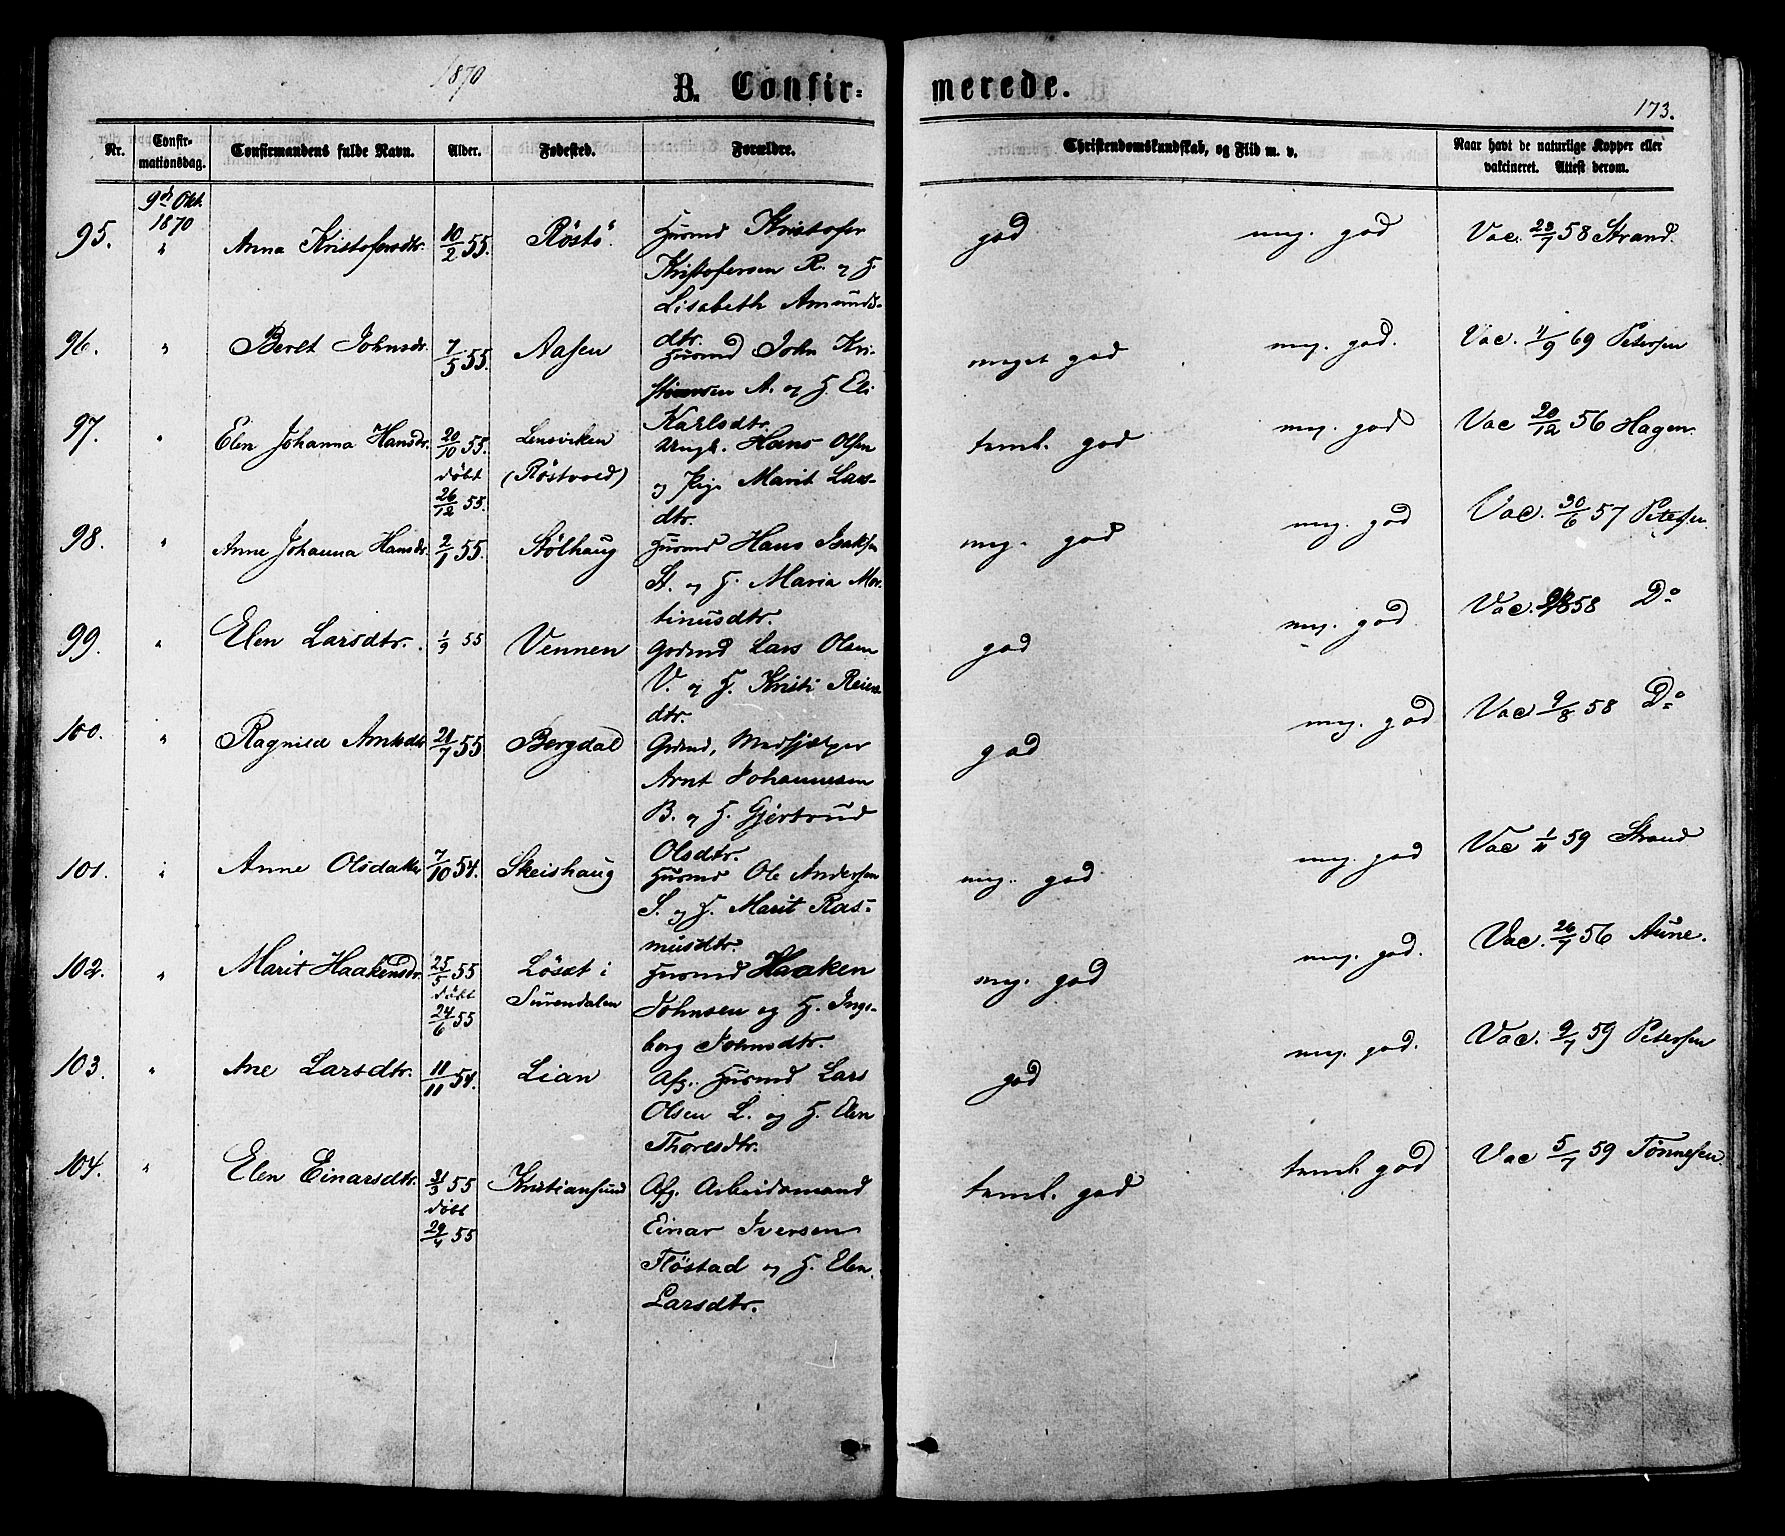 1870
B. Confir-
merede.
173.
Nr.
Confir-
mationsdag.
Confirmandens fulde Navn.
Alder.
Fødested.
Forældre.
Christendomskundskab, og Flid m. v.
Naar havt de naturlige Kopper eller
vakcineret. Attest derom.
9d Okt.
1870
95. " Anna Kristofersdtr. 10/2 55. Röstö. Husmd Kristofer god meg. god Vac. 23/7 58 Strand.
Kristofersen R. og H.
Lisabeth Amunds-
dtr.
96. " Beret Johnsdr. 7/5 55. Aasen Husmd John Kri- meget god meg. god. Vac. 11/9 69 Petersen
stiansen A. og H. Eli
Karlsdtr.
97. " Elen Johanna Hansdr. 20/10 55. Lensviken Ungk. Hans Olsen teml. god meg. god Vac 20/12 56 Hagen.
døbt (Röstvold) og Pige Marit Lars-
26/12 55. dtr.
98. " Anne Johanna Hansdr. 2/1 55. Stølhaug Husmd Hans Isaksen meg. god meg. god Vac. 30/6 57 Petersen.
St. og H. Maria Mor-
tinusdtr.
99. " Elen Larsdtr. 1/9 55 Vennen Gdmd Lars Olsen god meg. god. Vac. 58 Do
V. og H. Kristi Reiers
dtr.
100. " Ragnild Arntsdtr 21/7 55 Bergdal Grdmd, Medhjælper god meg. god Vac 9/8 58 Do
Arnt Johannesen
B. og H. Gjertrud
Olsdtr.
101. " Anne Olsdatter 7/10 54. Skeishaug Husmd Ole Andersen meg. god meg. god Vac 1/11 59 Strand
S. og H. Marit Ras-
musdtr.
102. " Marit Haakensdr. 25/5 55 Løset i Husmd Haaken meg. god meg. god. Vac. 26/7 56 Aune.
døbt Surendalen Johnsen og H. Inge-
24/6 55 borg Johnsdtr.
103. " Ane Larsdtr. 11/11 54. Lian Afg. Husmd Lars god meg. god. Vac. 9/7 59 Petersen
Olsen L. og H. Elen
Thoresdtr.
104. " Elen Einarsdtr. 31/3 55 Kristiansund Afg. Arbeidsmand teml. god teml. god Vac 5/7 59 Tønnesen.
døbt Einar Iversen
29/4 55 Fløstad og H. Elen
Larsdtr.